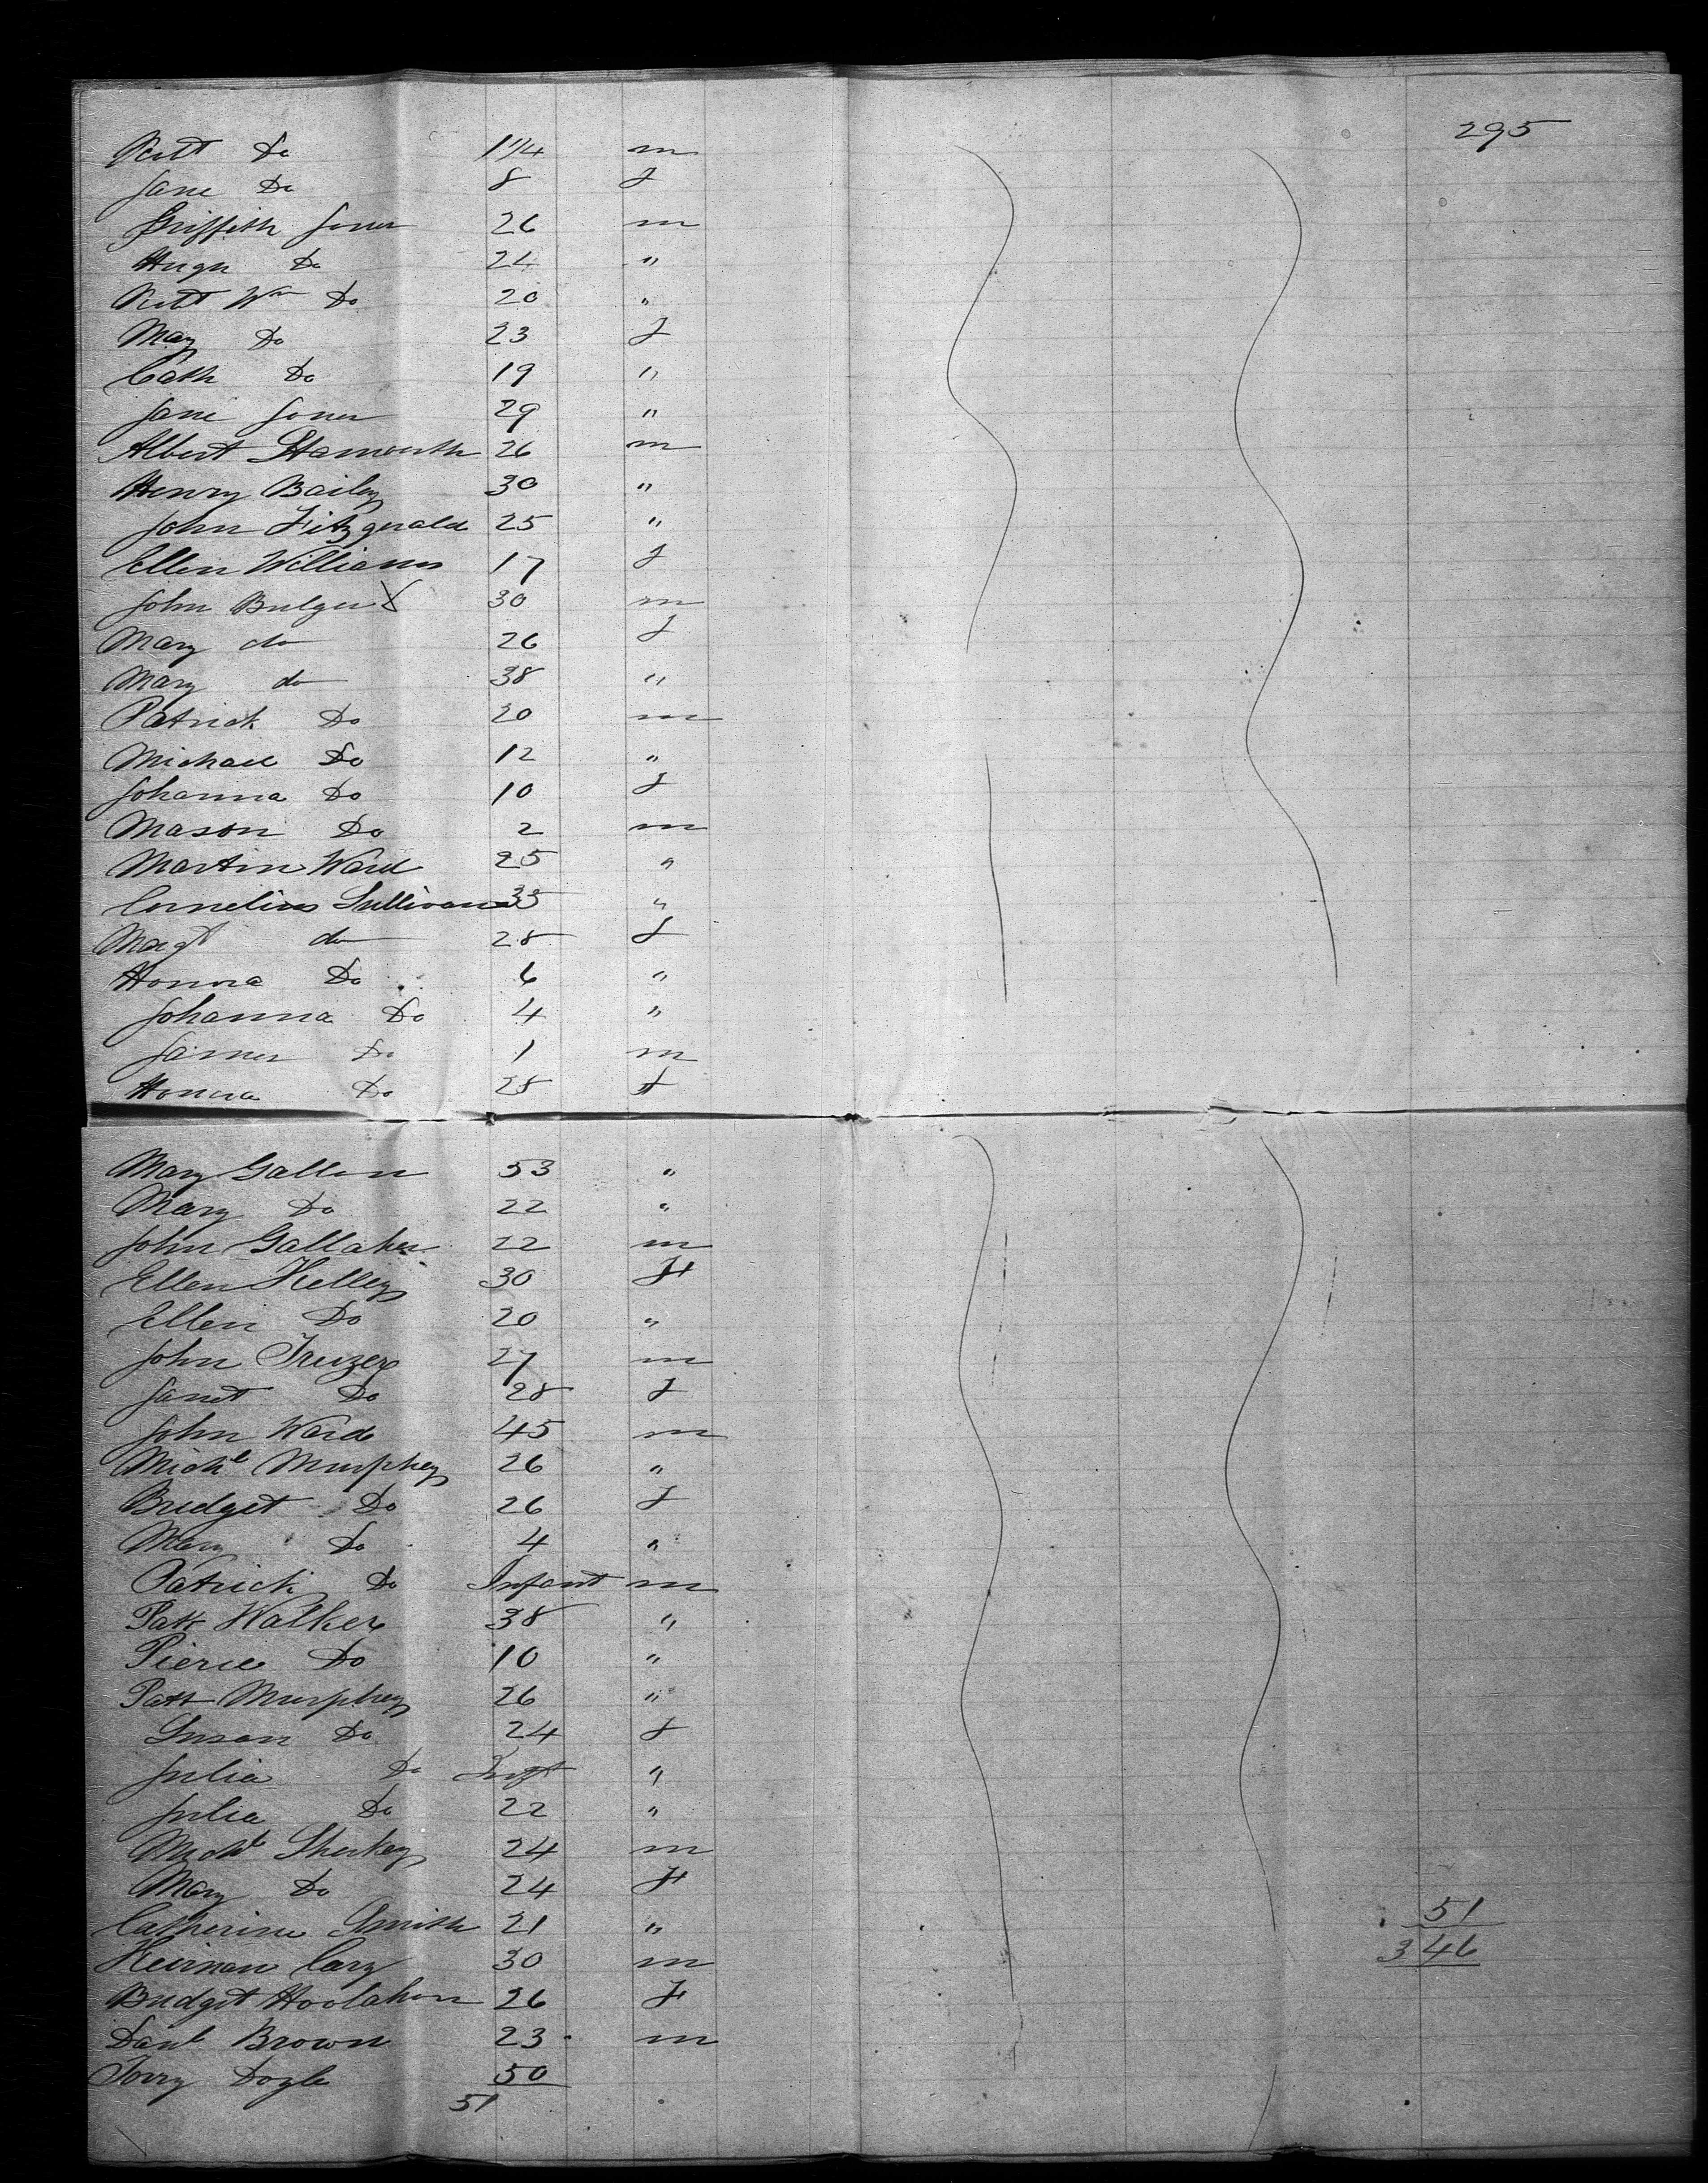 295
Robt Do 1 1/4 m
Jane Do 8 f
Griffith Jones 26 m
Hugh Do 24 "
Robt Wm Do 20 "
Mary Do 23 f
Cath Do 19 "
Jane Jones 29 "
Albert 26 m
Henry Bailey 30 "
John Fitzgerald 25 "
Ellen Williams 17 f
John Bulger 30 m
Mary do 26 f
Mary do 38 "
Patrick Do 20 m
Michael Do 12 "
Johanna Do 10 f
Mason Do 2 m
Martin Ward 25 "
Cornelius Sullivan 33 "
Margt do 28 f
Honora Do 6 "
Johanna Do 4 "
James Do 1 m
Honora Do 28 f
Mary Gallen 53 "
Mary Do 22 "
John Gallaher 22 m
Ellen Kelley 30 f
Ellen Do 20 "
John Frizer 27 m
Janet Do 28 f
John Ward 45 m
Michl Murphey 26 "
Bridget Do 26 f
Mary Do 4 "
Patrick Do Infant m
Patk Walker 38 "
Pierce Do 10 "
Patk Murphey 26 "
Susan Do 24 f
Julia Do Inft "
Julia Do 22 "
Michl Sharkey 24 m
Mary Do 24 f
Catherine Smith 21 "
51
Keirnan Cary 30 m
346
Bridget Hoolahan 26 f
Danl Brown 23 m
Doyle 50
51